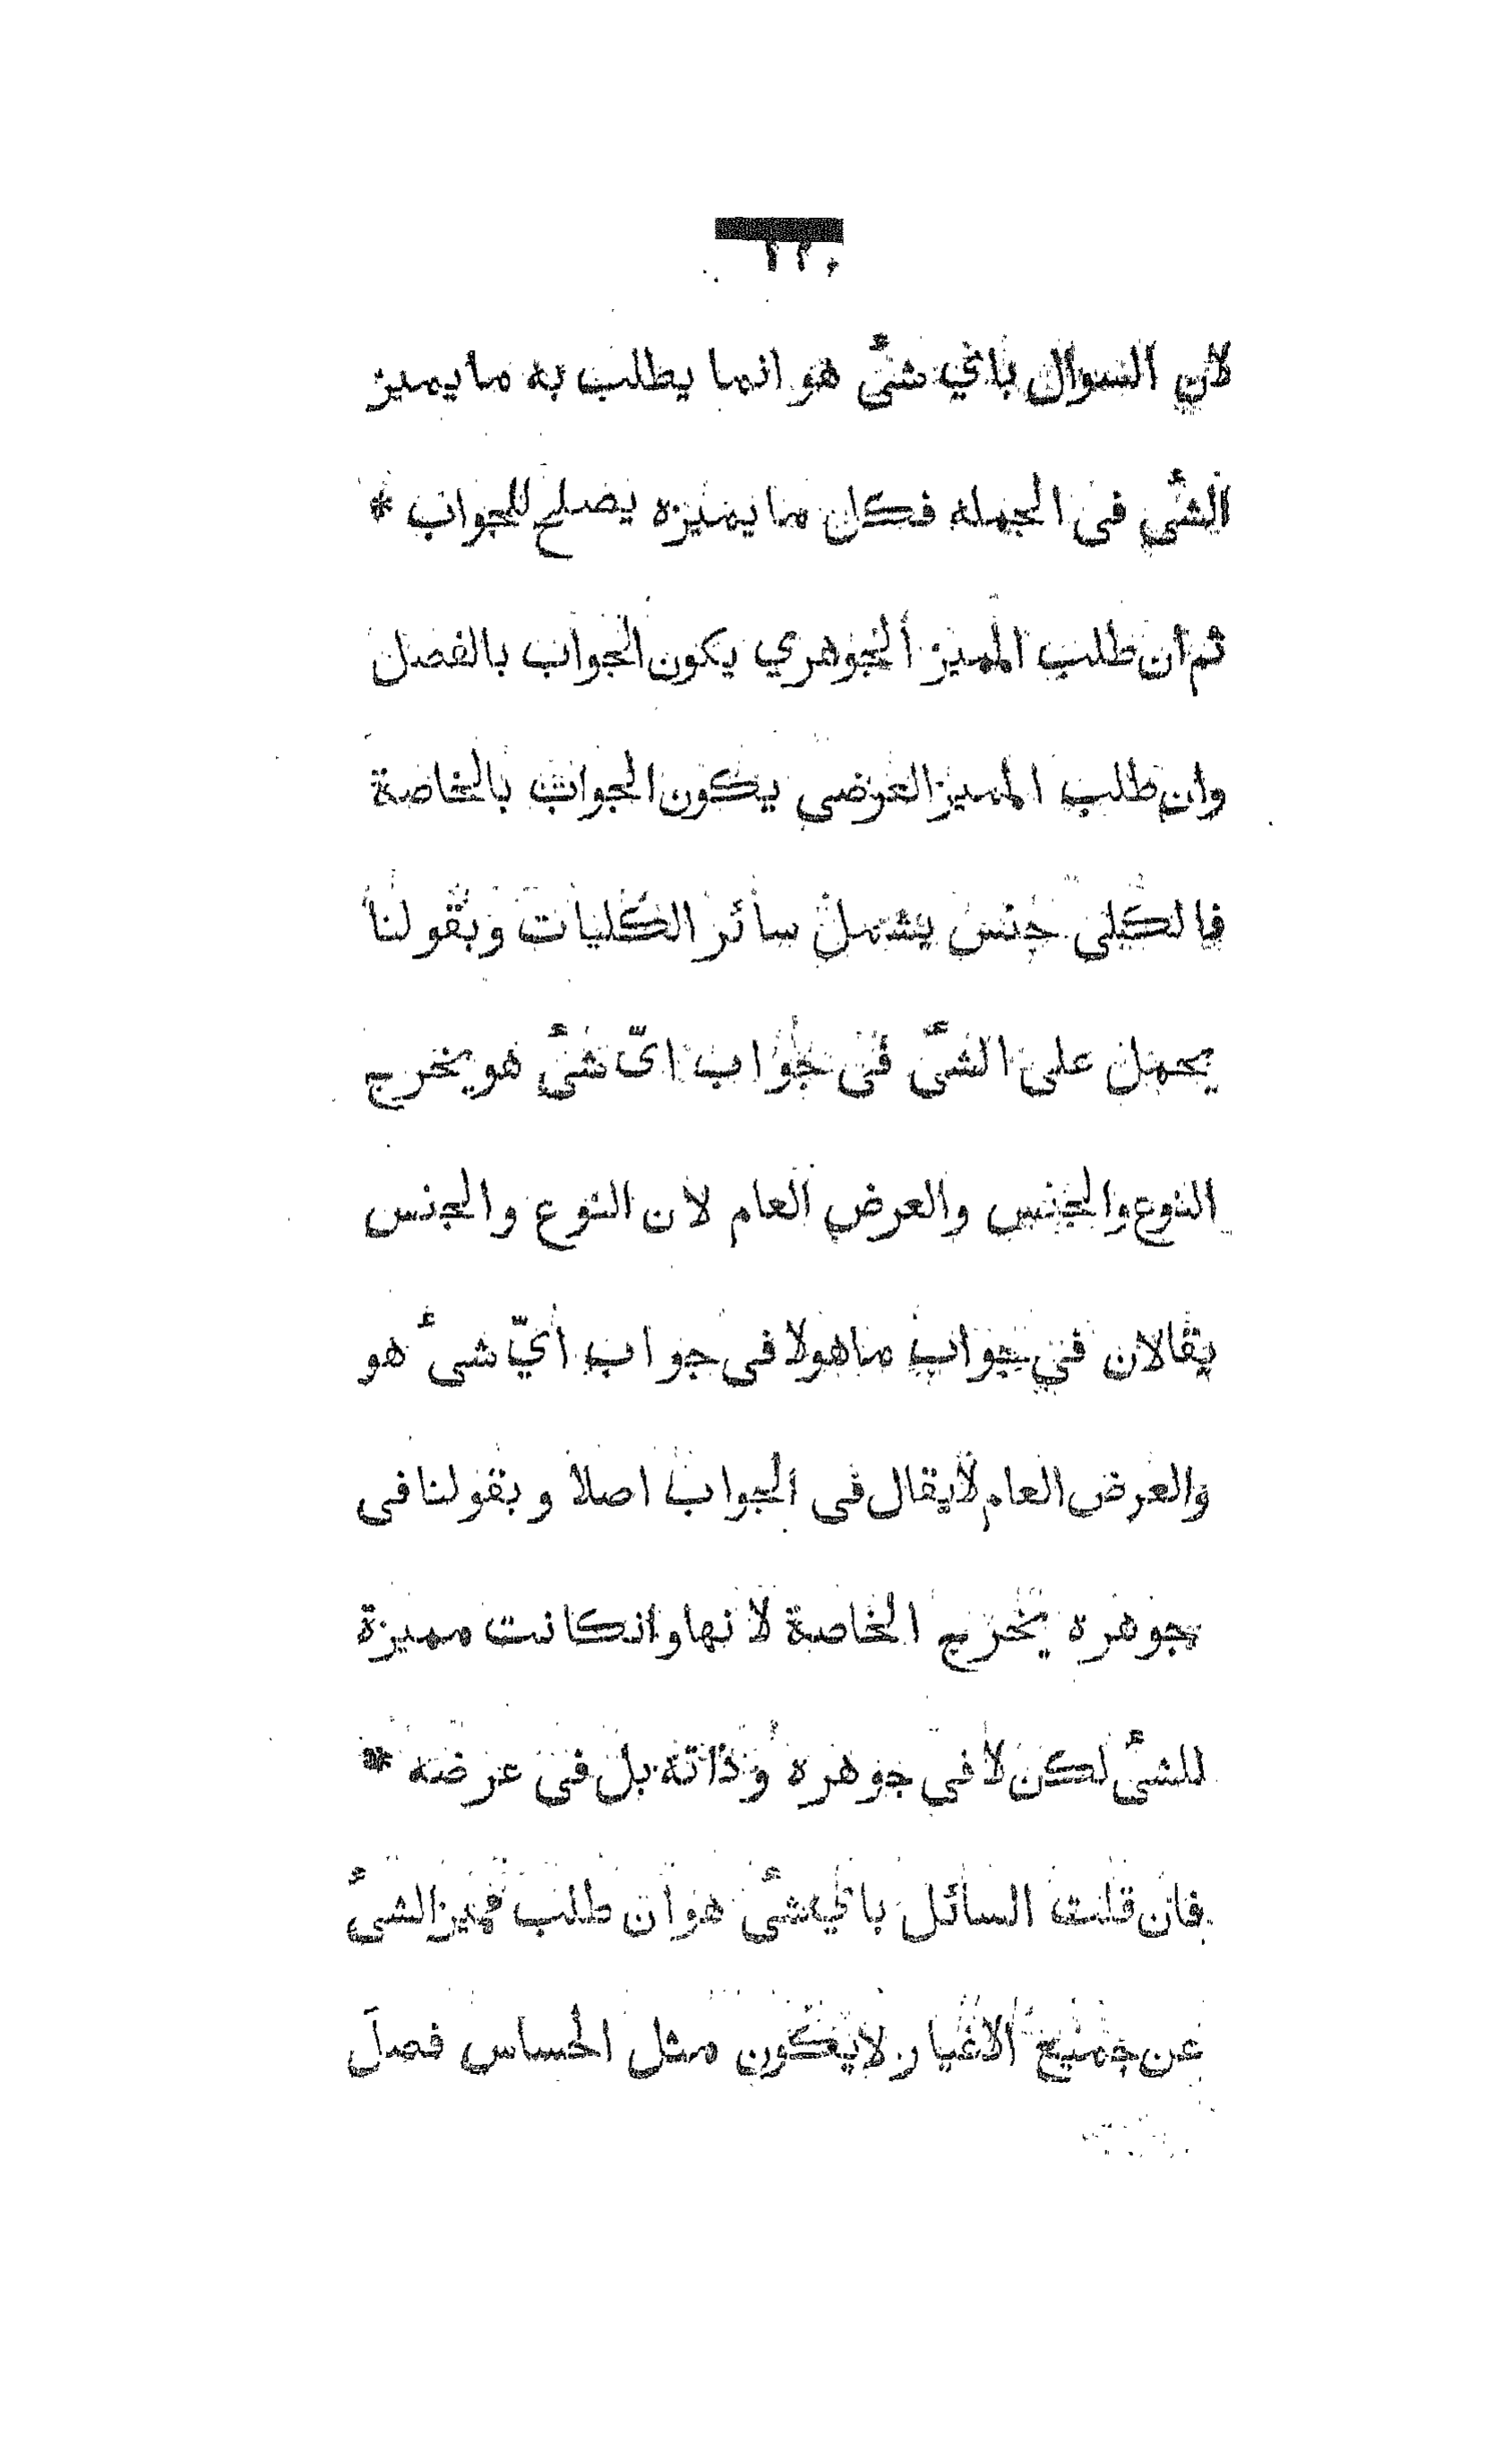 لان السوال باي شئ هو انما يطلب به ما يميز
الشئ في الجملة فكل ما يميزه يصلح للجواب *
ثم ان طلب المميز الجوهري يكون الجواب بالفصل
وان طلب المميز العرضى يكون الجواب بالخاصة
فالكلى جنس يشمل سائر الكليات وبقولنا
يحمل على الشئ فى جواب اىّ شئ هو يخرج
النوع والجنس والعرض العام لان النوع والجنس
يقالان في جواب ما هو لا فى جواب أيّ شئ هو
والعرض العام لا يقال فى الجواب اصلا وبقولنا فى
جوهره يخرج الخاصة لانها وان كانت مميزة
للشئ لكن لا فى جوهره وذاته بل فى عرضه *
فان قلت السائل باي شئ هو ان طلب مميز الشئ
عن جميع الاغيار لا يكون مثل الحساس فصل